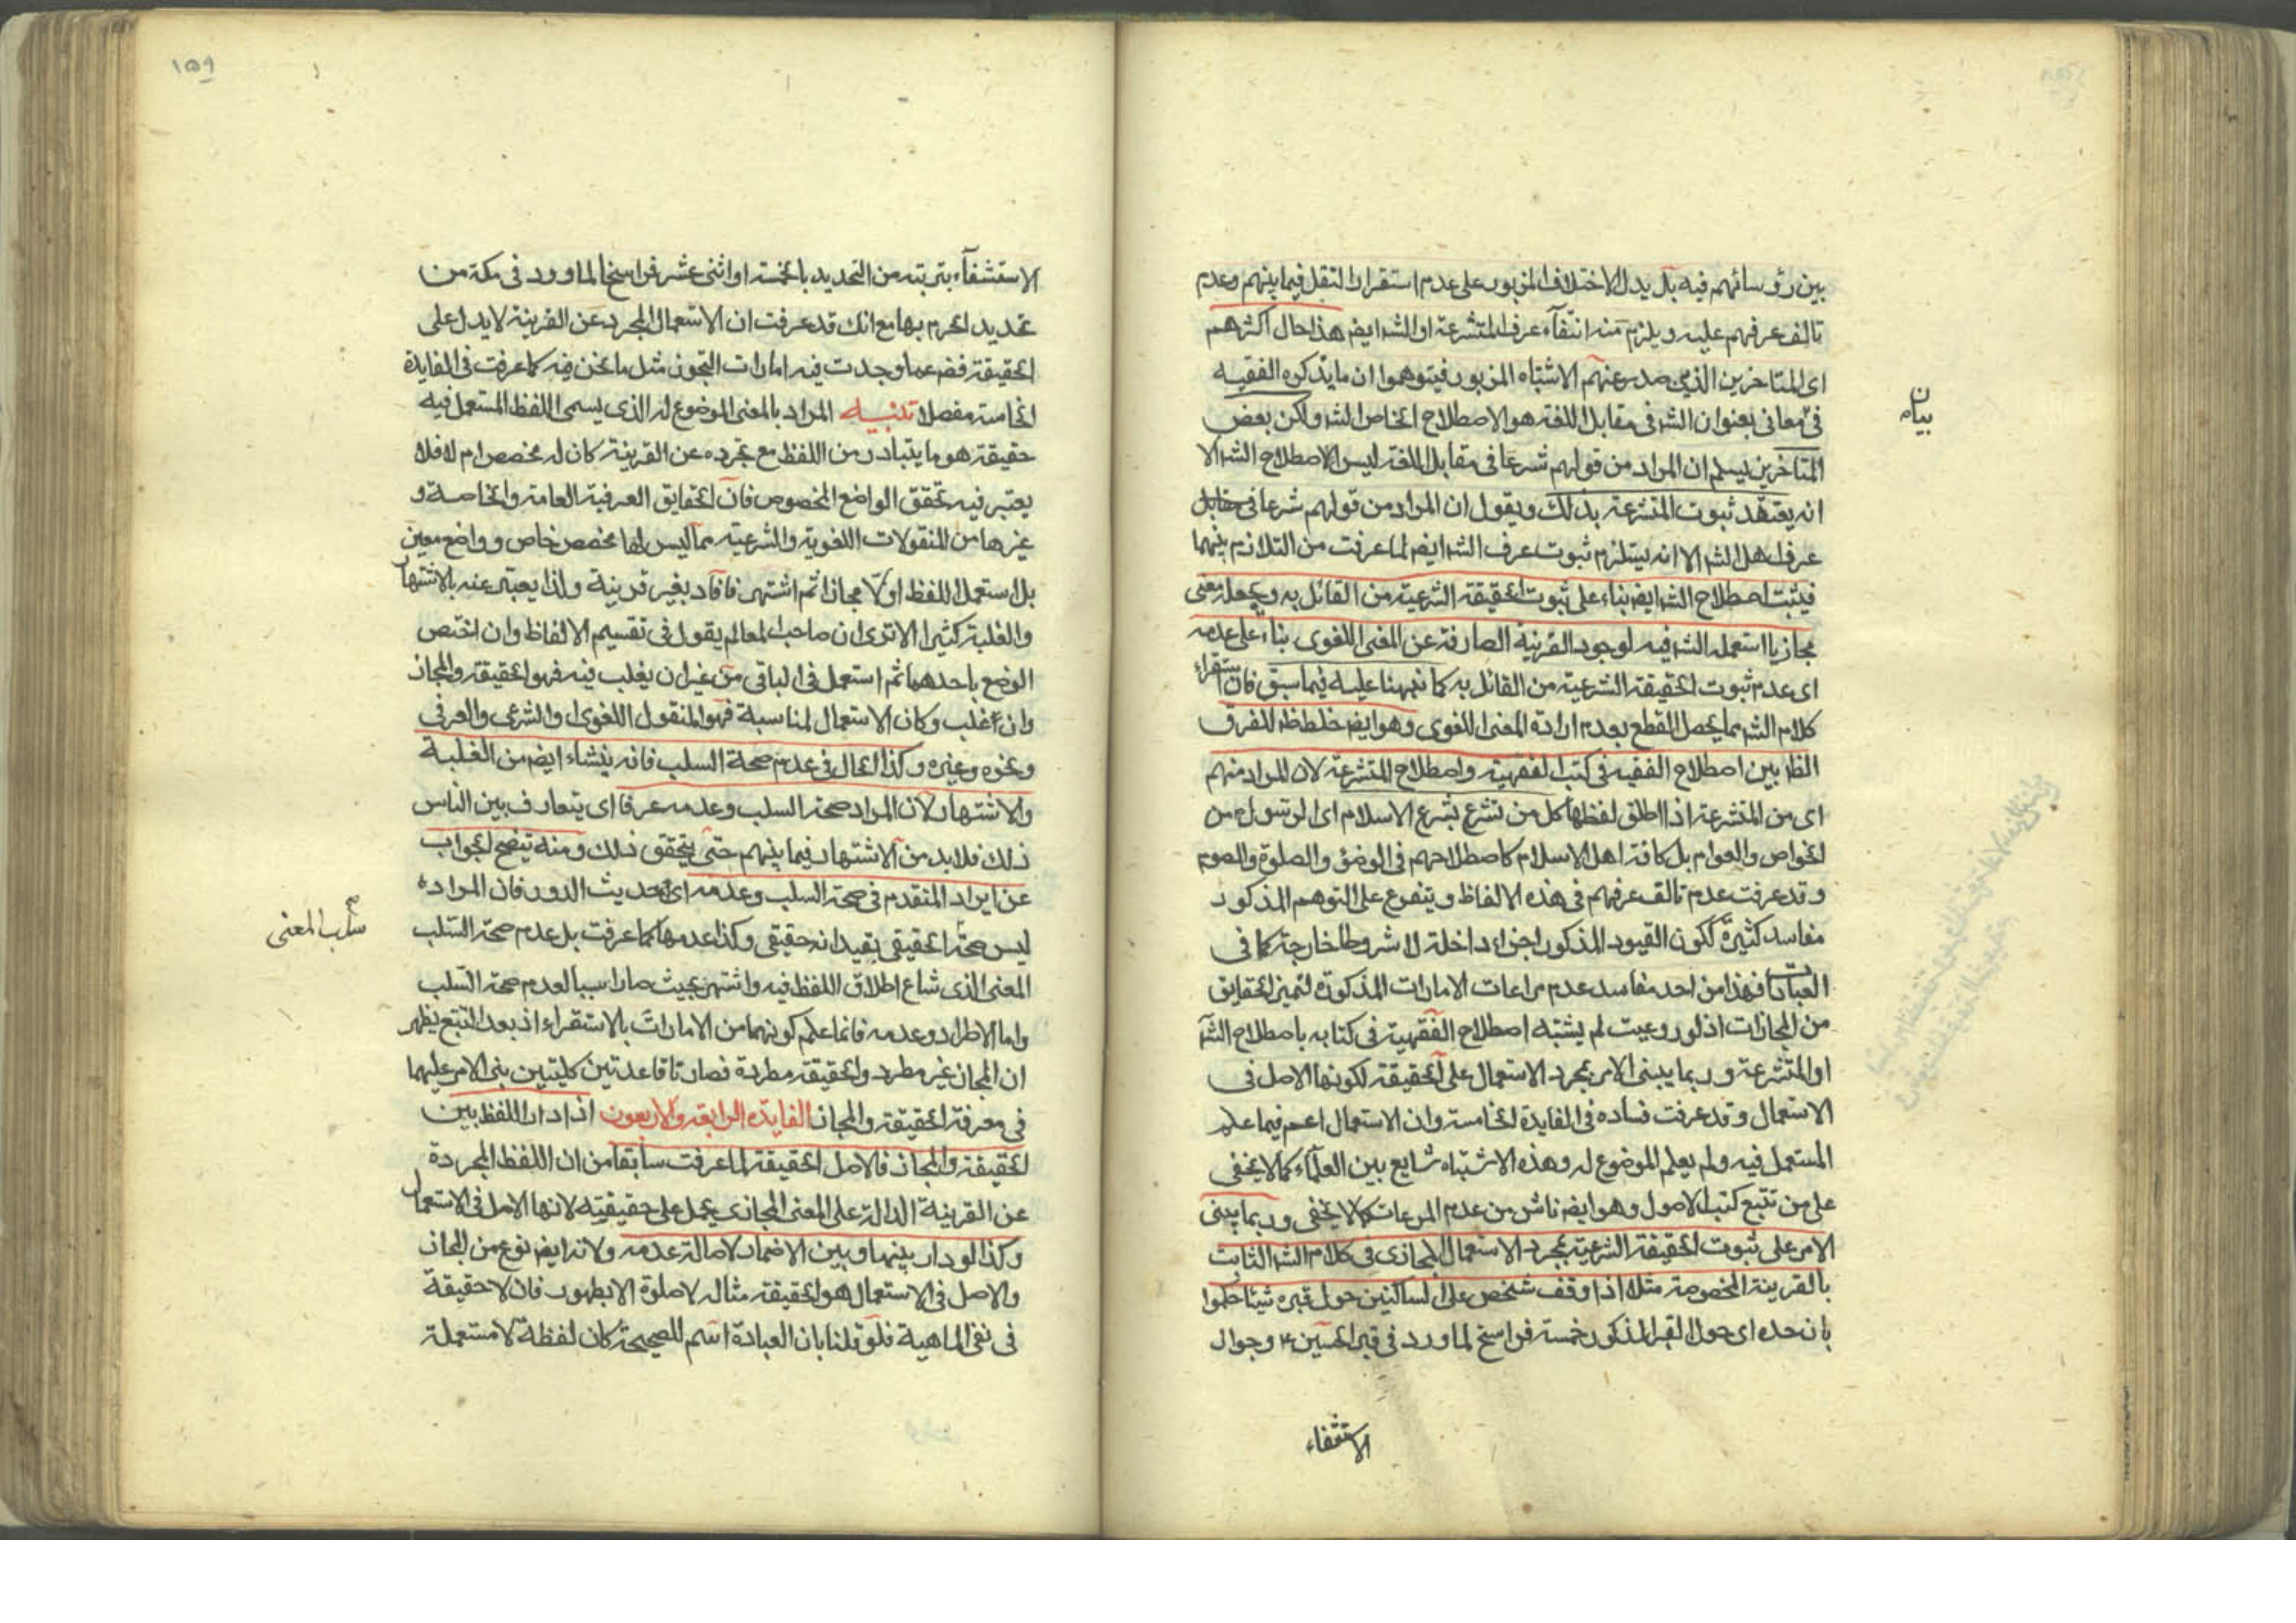 بين رؤسائهم فيه بل يدل الاختلاف المزبور على عدم استقرار النقل فيما بينهم وعدم
تالف عرفهم عليه ويلزم منه انتفاء عرف المتشرعة او الشه ايضه هذا حال اكثرهم
اى المتاخرين الذين صدر عنهم الاشتباه المزبور فيتوهموا ان ما يذكره الفقيه
فى معانى بعنوان الشه فى مقابل اللغة هو الاصطلاح الخاص الشه ولكن بعض
بيان
المتاخرين يسلم ان المراد من قولهم شرعا فى مقابل اللغة ليس الاصطلاح الشه الا
انه يعتقد ثبوت المتشرعة بذلك ويقول ان المراد من قولهم شرعا فى مقابل
عرف اهل الشه الا انه يستلزم ثبوت عرف الشه ايضه لما عرفت من التلازم بينهما
فيثبت اصطلاح الشه ايضه بناء على ثبوت الحقيقة الشرعية من القائل به ويجعله معنى
مجازيا استعمله الشه فيه لوجود القرينة الصارفة عن المعنى اللغوى بناء على عدمه
اى عدم ثبوت الحقيقة الشرعية من القائل به كما نبهنا عليه فيما سبق فان استقراء
كلام الشه مما يحصل القطع بعدم ارادة المعنى اللغوى وهو ايضه خلط ظه للفرق
الظه بين اصطلاح الفقيه فى كتب الفقهية واصطلاح المتشرعة لان المراد منهم
اى من المتشرعة اذا اطلق لفظها كل من تشرع بشرع الاسلام اى الرسول ص من
الخواص والعوام بل كافة اهل الاسلام كاصطلاحهم فى الوضؤ والصلوة والصوم
وقد عرفت عدم تالف عرفهم فى هذه الالفاظ ويتفرع على التوهم المذكور
مفاسد كثيرة ككون القيود المذكور اجزاء داخلة لا شروطا خارجة كما فى
العبادات فهذا من احد مفاسد عدم مراعات الامارات المذكورة لتميز الحقايق
من المجازات اذ لو روعيت لم يشتبه اصطلاح الفقهية فى كتابه باصطلاح الشه
او المتشرعة وربما يبنى الامر بمجرد الاستعمال على الحقيقة لكونها الاصل فى
الاستعمال وقد عرفت فساده فى الفايدة الخامسة وان الاستعمال اعم فيما علم
المستعمل فيه ولم يعلم الموضوع له وهذه الاشتباه شايع بين العلماء كما لا يخفى
على من تتبع كتب الاصول وهو ايضه ناش من عدم المرعات كما لا يخفى وربما يبنى
الامر على ثبوت الحقيقة الشرعية بمجرد الاستعمال المجازى فى كلام الشه الثابت
بالقرينة المخصوصة مثلا اذا وقف شخص على الساكنين حول قبره شيئا حكموا
بان حده اى حول القبر المذكور خمسة فراسخ لما ورد فى قبر الحسين ع وجوال
الاستشفاء
١٥٩
الاستشفاء بتربته من التحديد بالخمسة او اثنى عشر فراسخا لما ورد فى مكة من
تحديد الحرم بها مع انك قد عرفت ان الاستعمال المجرد عن القرينة لا يدل على
الحقيقة فضه عما وجدت فيه امارات التجوز مثل ما نحن فيه كما عرفت فى الفايدة
الخامسة مفصلا تنبيه المراد بالمعنى الموضوع له الذى يسمى اللفظ المستعمل فيه
حقيقة هو ما يتبادر من اللفظ مع تجرده عن القرينة كان له مخصص ام لا فلا
يعتبر فيه تحقق الواضع المخصوص فان الحقايق العرفية العامة والخاصة و
غيرها من المنقولات اللغوية والشرعية مما ليس لها مخصص خاص وواضع معين
بل استعمل اللفظ اولا مجازا ثم اشتهر فافاد بغير قرينة ولذا يعبر عنه بالاشتهار
والغلبة كثيرا الا ترى ان صاحب المعالم يقول فى تقسيم الالفاظ وان اختص
الوضع باحدهما ثم استعمل فى الباقى من غير ان يغلب فيه فهو الحقيقة والمجاز
وان غلب وكان الاستعمال لمناسبة فهو المنقول اللغوى والشرعى والعرفى
ونحوه وغيره وكذا الحال فى عدم صحة السلب فانه ينشاء ايضه من الغلبة
والاشتهار لان المراد صحة السلب وعدمه عرفا اى يتعارف بين الناس
ذلك فلا بد من الاشتهار فيما بينهم حتى يتحقق ذلك ومنه يتضح الجواب
عن ايراد المتقدم فى صحة السلب وعدمه اى حديث الدور فان المراد
ليس صحة الحقيقى بقيد انه حقيقى وكذا عدمها كما عرفت بل عدم صحة السلب
سلب المعنى
المعنى الذى شاع اطلاق اللفظ فيه واشتهر بحيث صار سببا لعدم صحة السلب
واما الاطراد وعدمه فانما علم كونهما من الامارات بالاستقراء اذ بعد التتبع يظهر
ان المجاز غير مطرد والحقيقة مطردة فصارتا قاعدتين كليتين بنى الامر عليهما
فى معرفة الحقيقة والمجاز الفايدة الرابعة والاربعون اذا دار اللفظ بين
الحقيقة والمجاز فالاصل الحقيقة لما عرفت سابقا من ان اللفظ المجردة
عن القرينة الدالة على المعنى المجازى يحمل على حقيقيته لانها الاصل فى الاستعمال
وكذا لو دار بينها وبين الاضمار لاصالة عدمه ولانه ايضه نوع من المجاز
والاصل فى الاستعمال هو الحقيقة مثاله لا صلوة الا بطهور فان لا حقيقة
فى نفى الماهية فلو قلنا بان العبادة اسم للصحيحة كان لفظة لا مستعملة